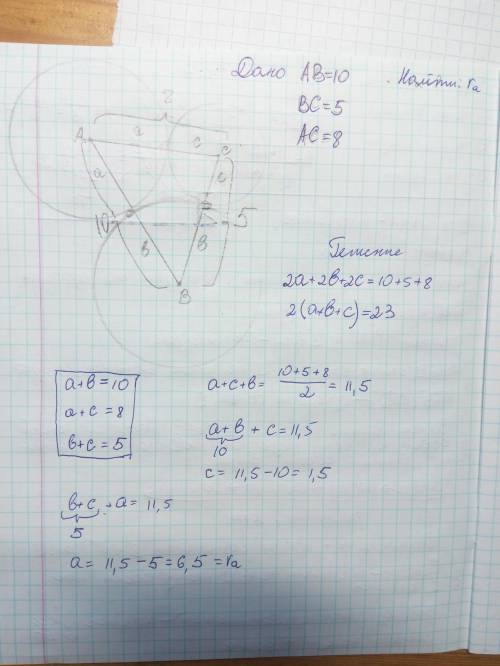 Дано AB=10 Найти: ra
BC=5
AC=8
8
A a c C
a c
10 5
в в
B
Решение
2a+2в+2c=10+5+8
2(a+в+c)=23
a+в=10
a+c=8
в+c=5
a+c+в= 10+5+8 / 2 = 11,5
a+в + c=11,5
10
c= 11,5-10=1,5
в+c +a= 11,5
5
a= 11,5-5=6,5=ra